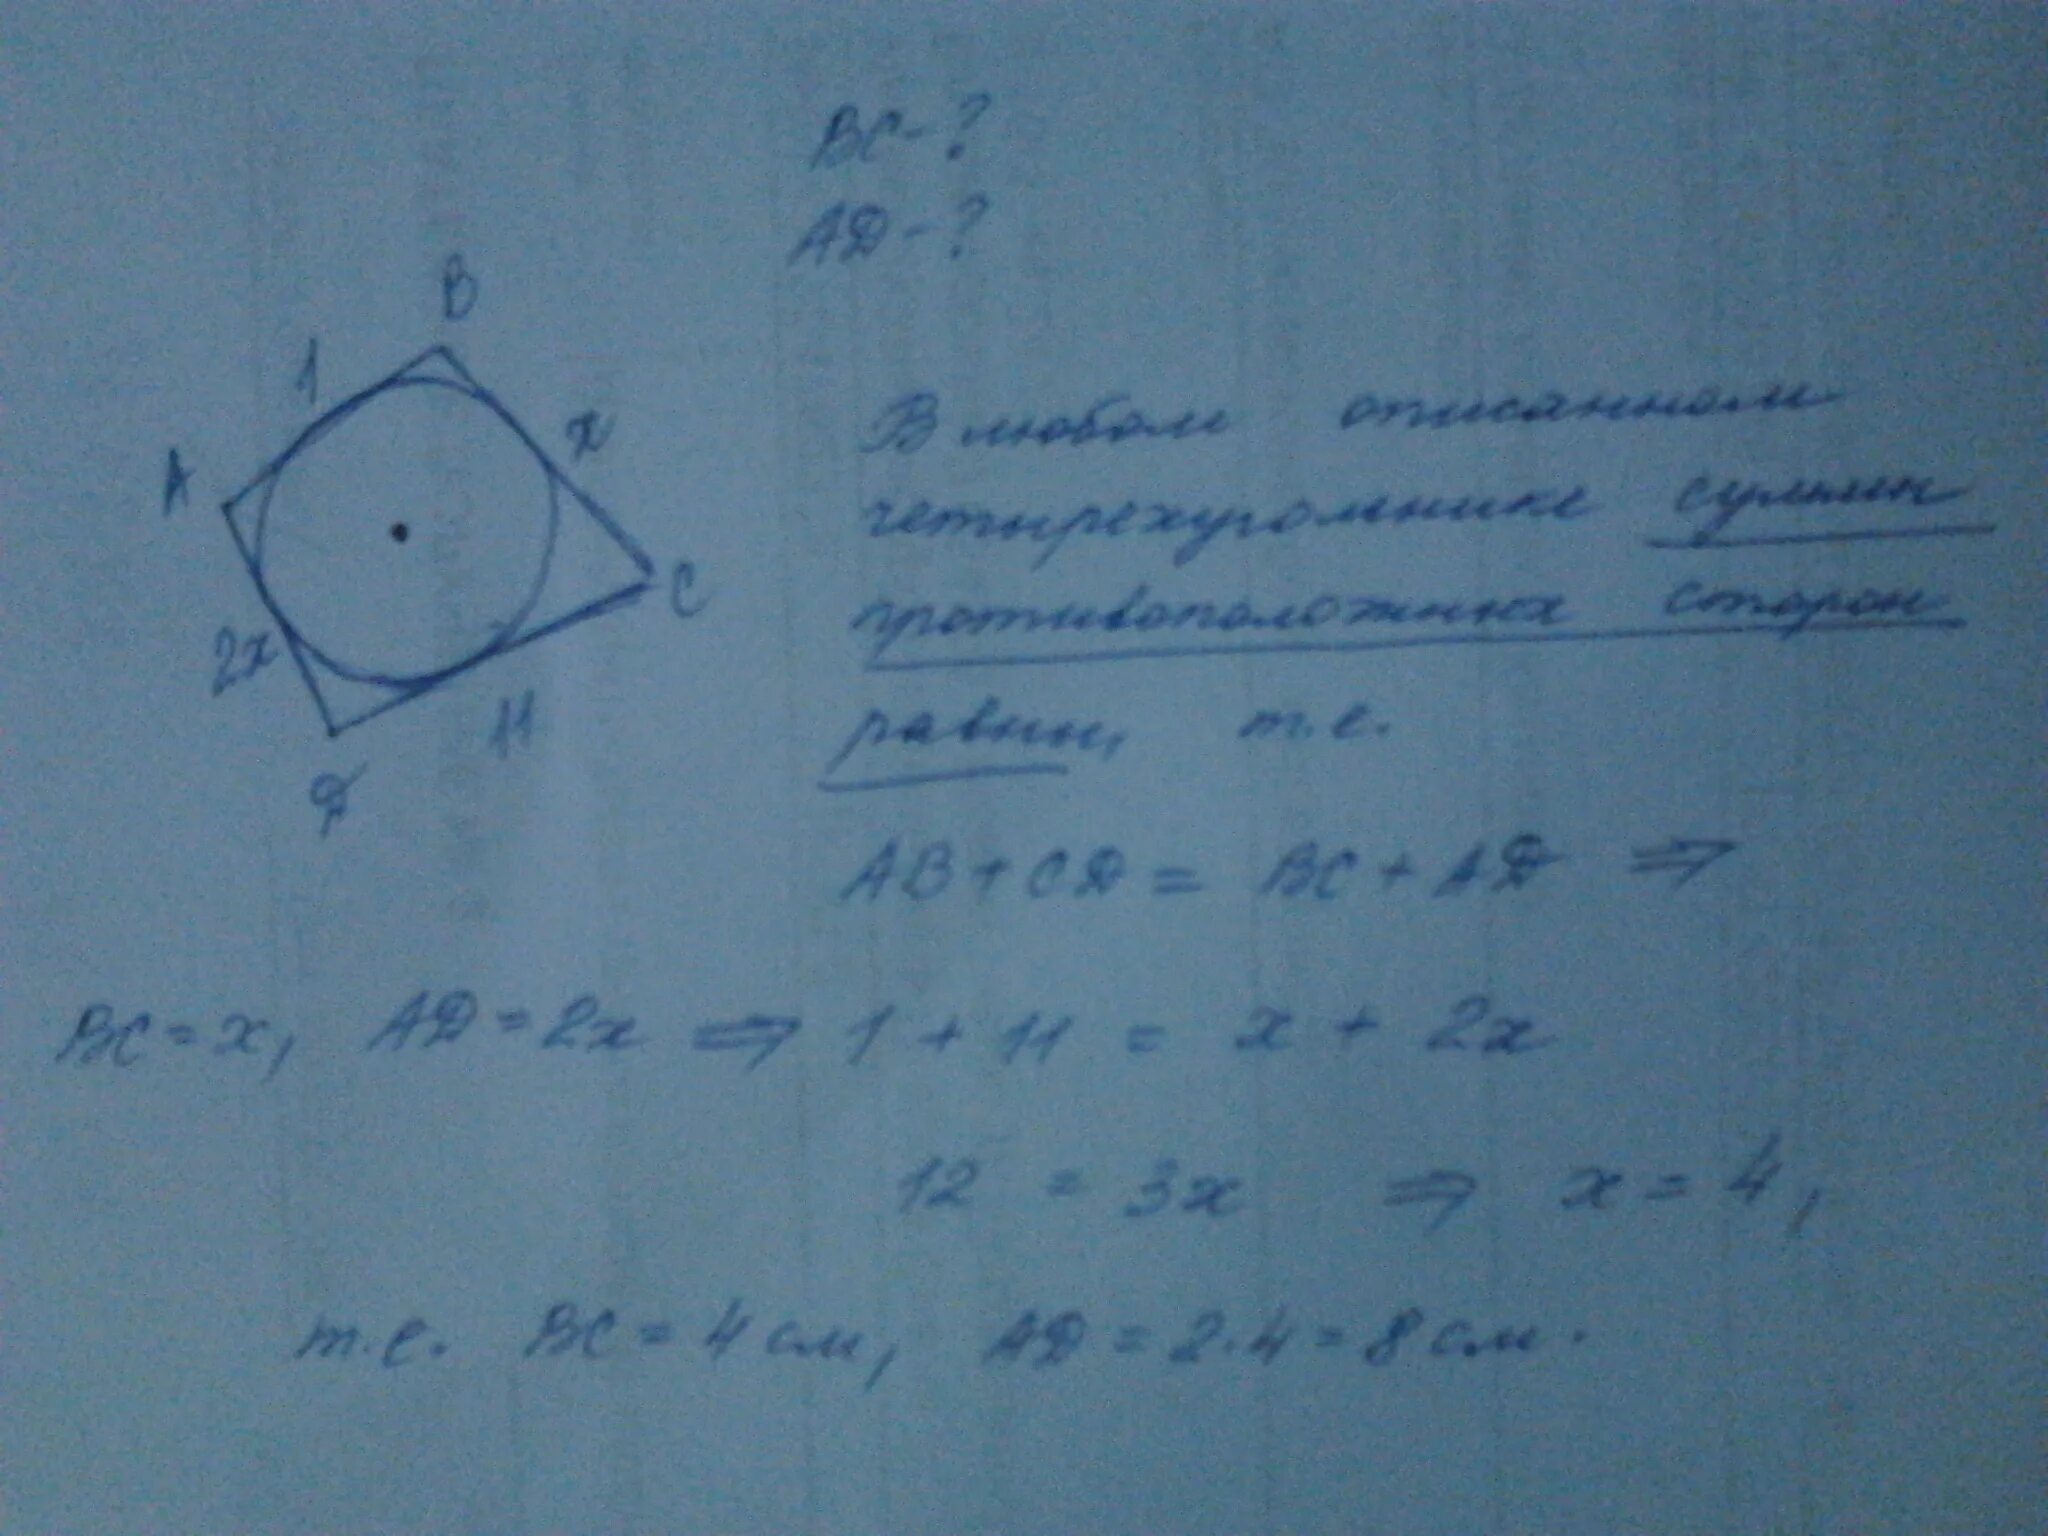 BC - ?
AD - ?
B
1
x
A
C
2x
11
D
В любом описанном
четырехугольнике суммы
противоположных сторон
равны, т.е.
AB + CD = BC + AD ⇒
BC = x, AD = 2x ⇒ 1 + 11 = x + 2x
12 = 3x ⇒ x = 4,
т.е. BC = 4 см, AD = 2·4 = 8 см.